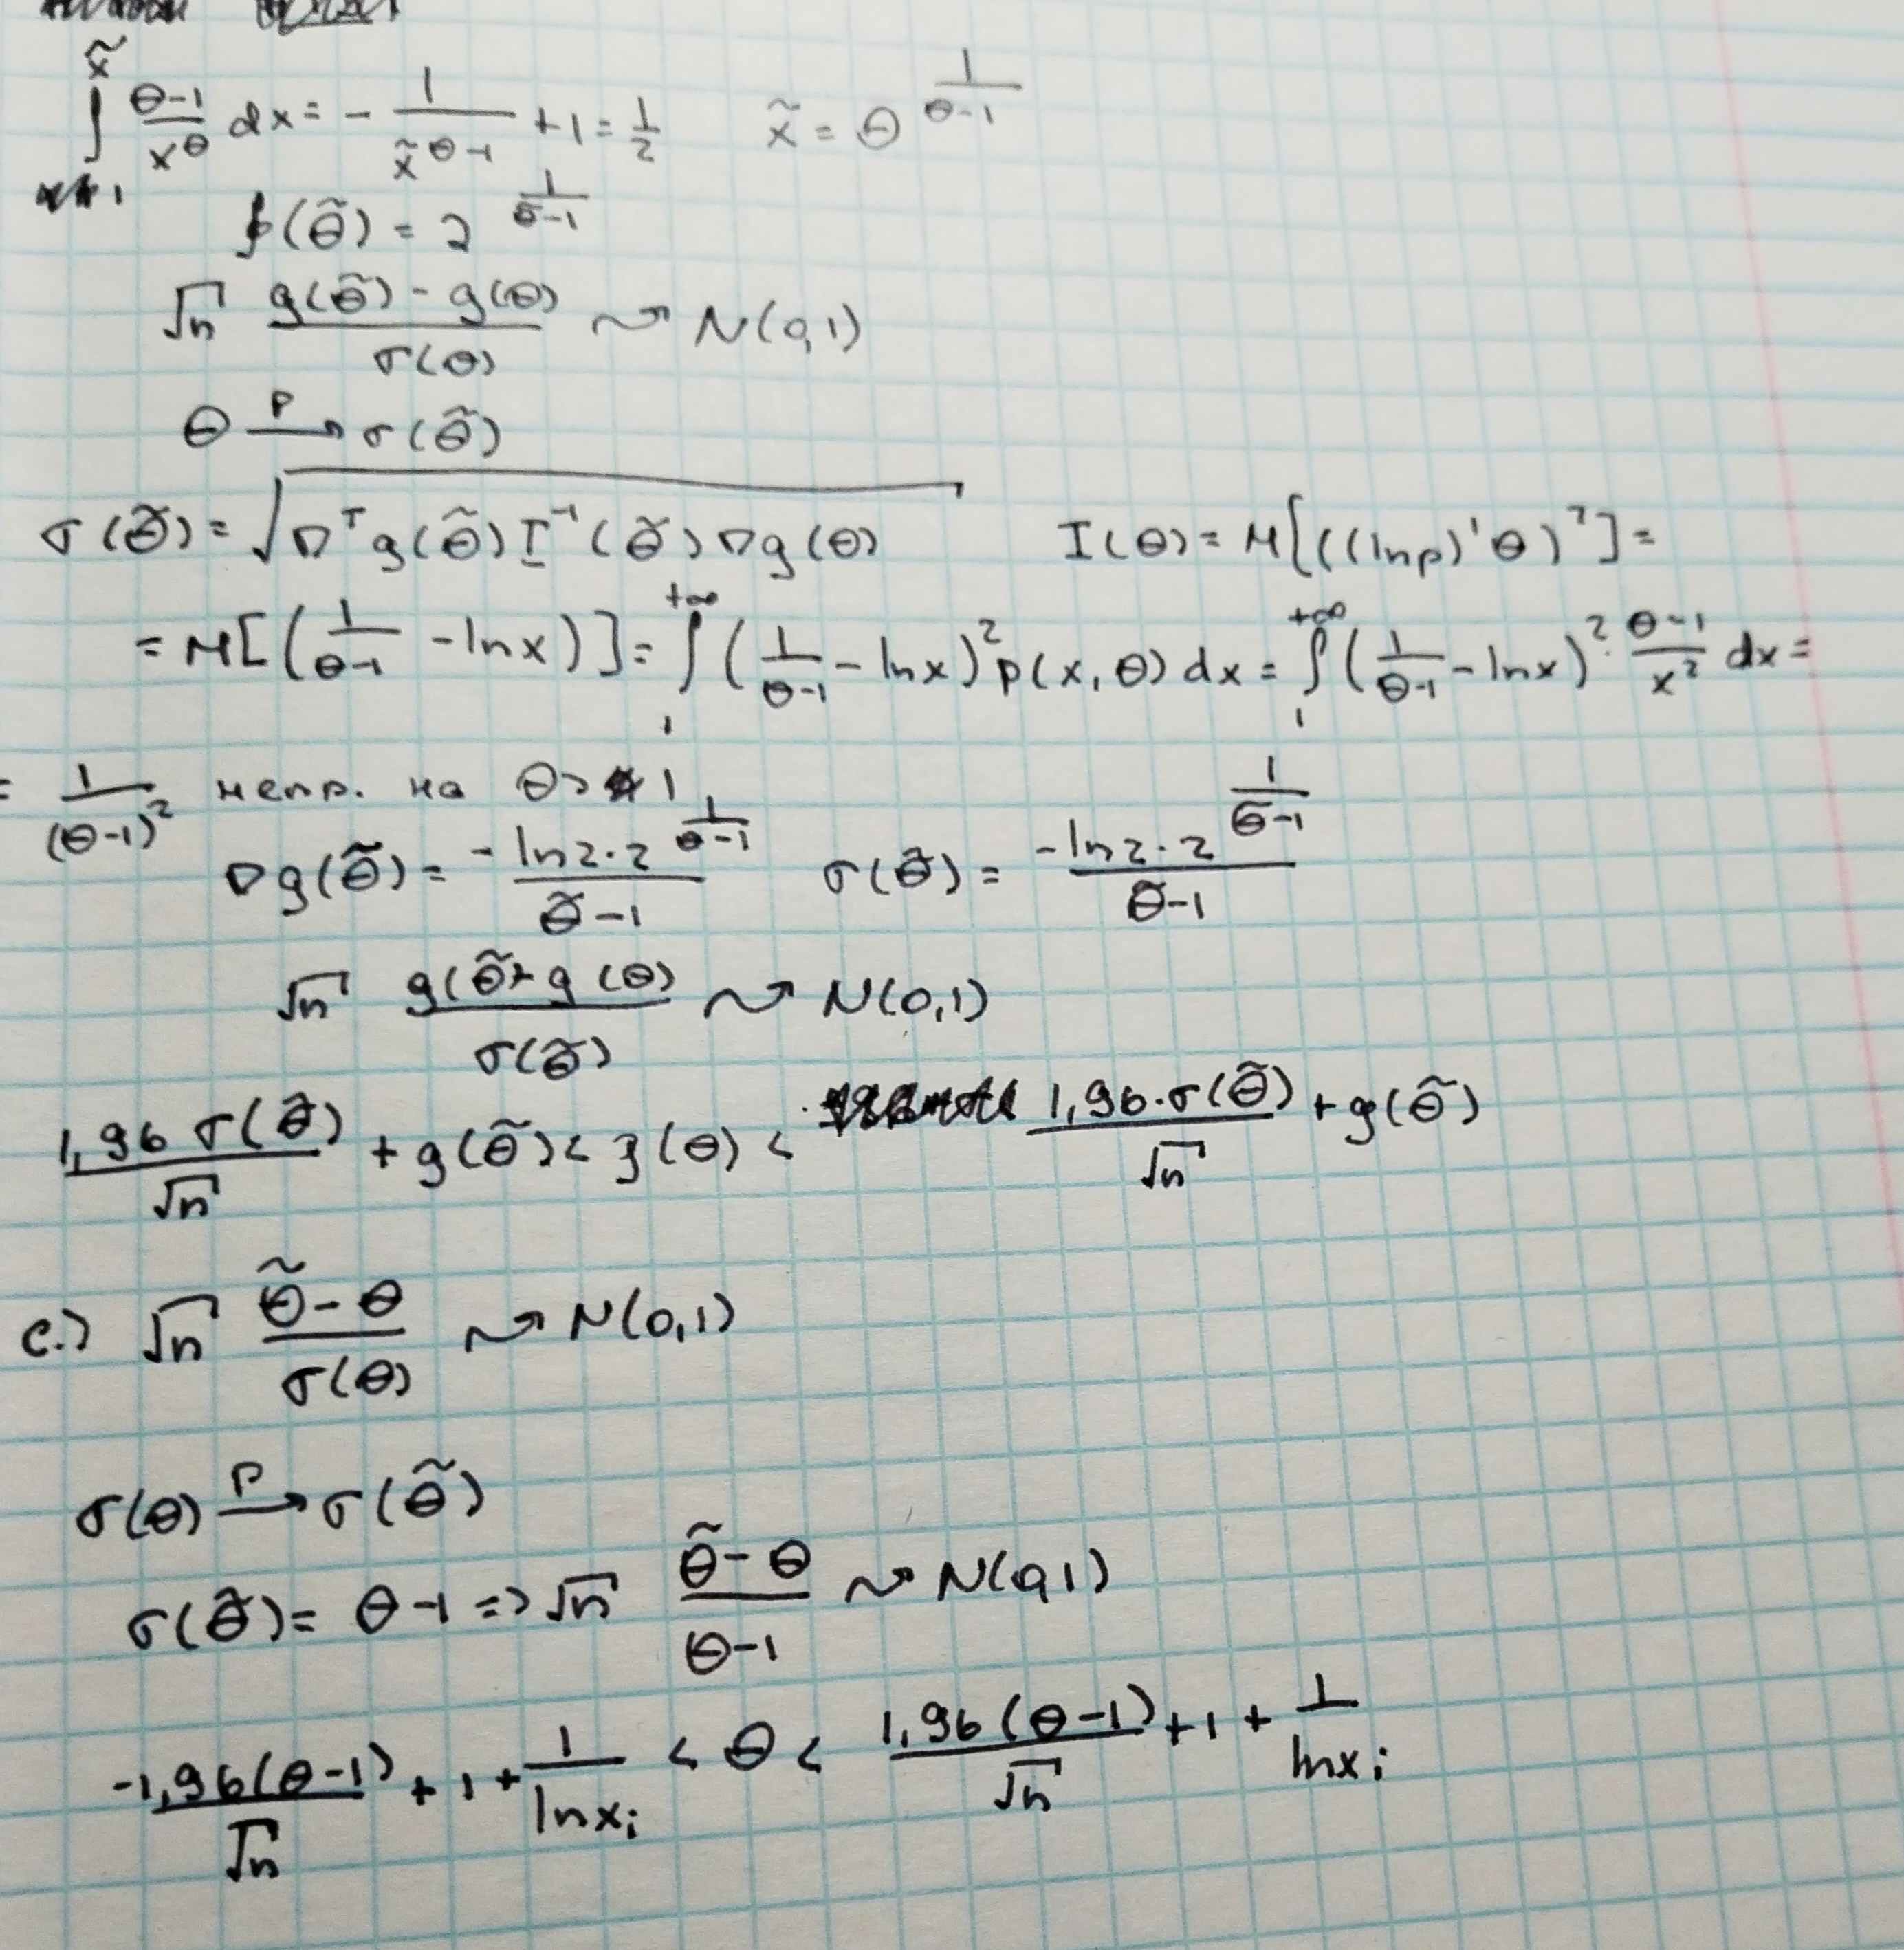 ∫₁^x̃ (θ-1)/x^θ dx = - 1/x̃^(θ-1) + 1 = 1/2    x̃ = θ^(1/(θ-1))
g(θ̃) = 2^(1/(θ̃-1))
√n (g(θ̃) - g(θ))/σ(θ) ⇝ N(0,1)
θ →^P σ(θ̃)
σ(θ̃) = √(∇ᵀg(θ̃) I⁻¹(θ̃) ∇g(θ))    I(θ) = M[((ln p)'θ)²] =
= M[(1/(θ-1) - ln x)] = ∫₁^(+∞) (1/(θ-1) - ln x)² p(x, θ) dx = ∫₁^(+∞) (1/(θ-1) - ln x)² · (θ-1)/x² dx =
= 1/(θ-1)² непр. на θ > 1
∇g(θ̃) = (-ln 2 · 2^(1/(θ-1)))/(θ̃-1)    σ(θ̃) = (-ln 2 · 2^(1/(θ̃-1)))/(θ̃-1)
√n (g(θ̃) - g(θ))/σ(θ̃) ⇝ N(0,1)
1,96 σ(θ̃)/√n + g(θ̃) < g(θ) < 1,96 · σ(θ̃)/√n + g(θ̃)
c.) √n (θ̃ - θ)/σ(θ) ⇝ N(0,1)
σ(θ) →^P σ(θ̃)
σ(θ̃) = θ-1 => √n (θ̃ - θ)/(θ-1) ⇝ N(0,1)
-1,96(θ-1)/√n + 1 + 1/ln xᵢ < θ < 1,96(θ-1)/√n + 1 + 1/ln xᵢ